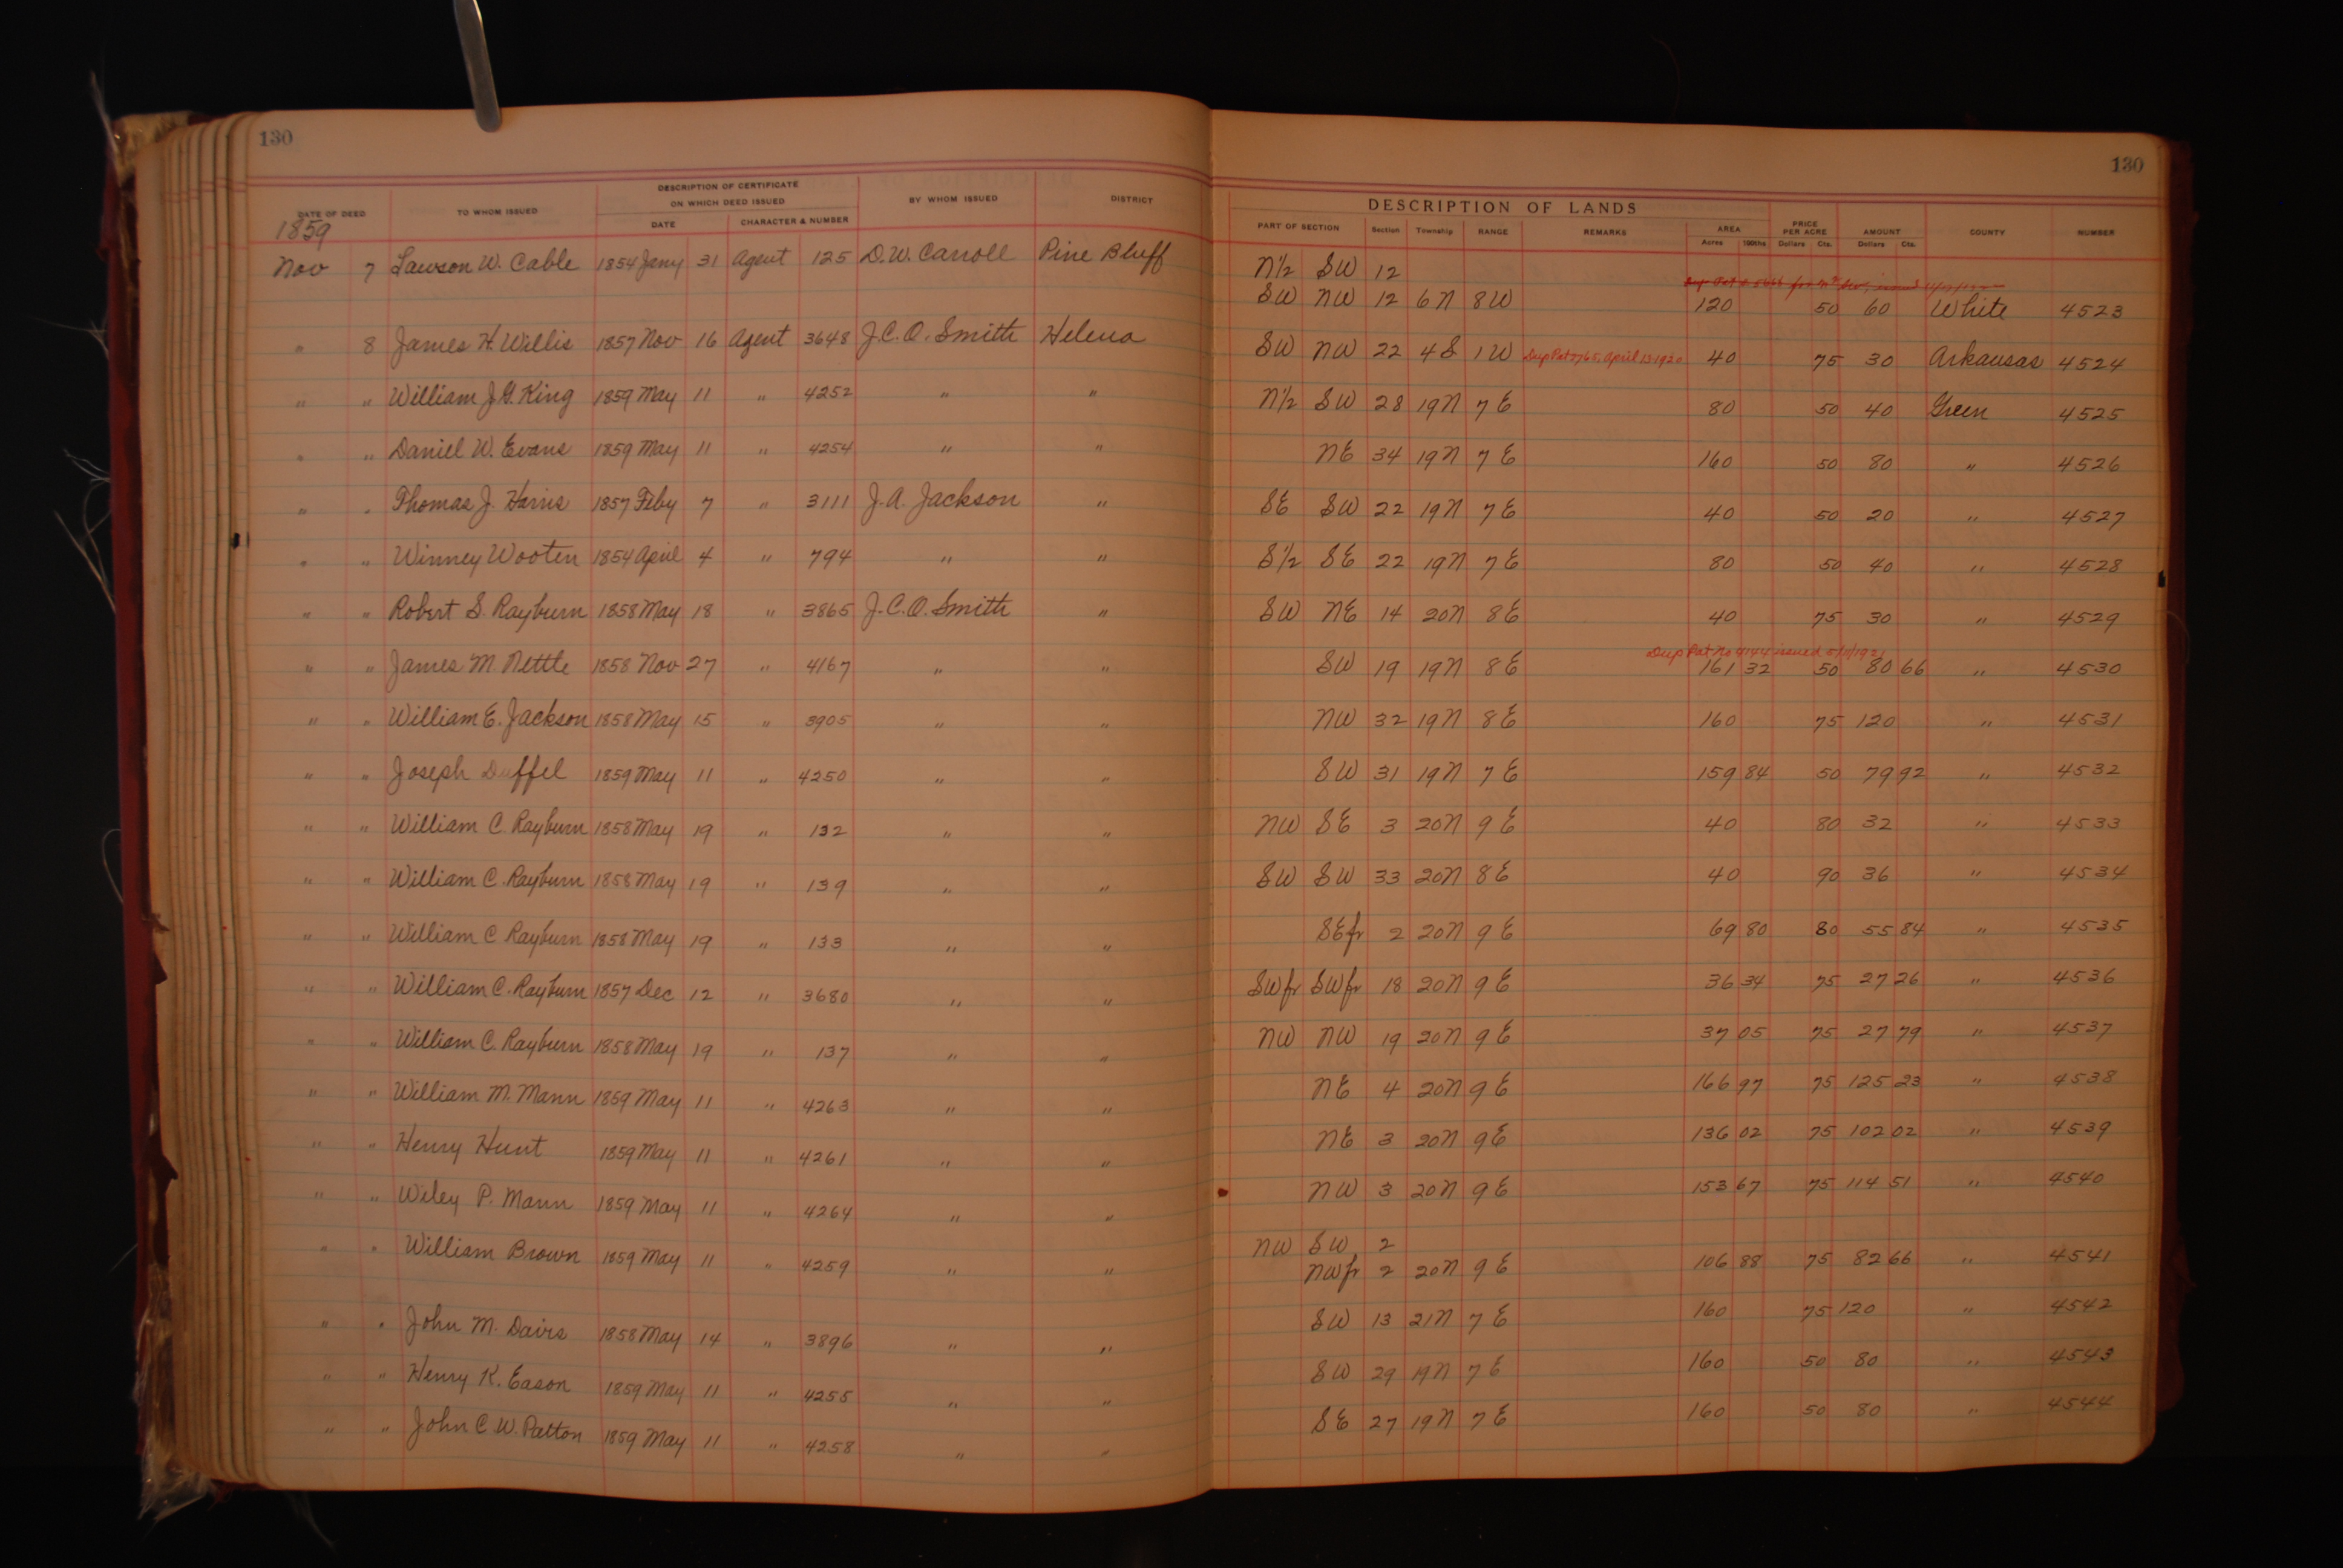 130
130
DATE OF DEED TO WHOM ISSUED DESCRIPTION OF CERTIFICATE ON WHICH DEED ISSUED BY WHOM ISSUED DISTRICT
DATE CHARACTER & NUMBER
DESCRIPTION OF LANDS
PART OF SECTION Section Township RANGE REMARKS AREA PRICE PER ACRE AMOUNT COUNTY NUMBER
Acres 100ths Dollars Cts. Dollars Cts.
1859
Nov 7 Lawson W. Cable 1854 Jany 31 Agent 125 D.W. Carroll Pine Bluff N½ SW 12
SW NW 12 6N 8W 120 50 60 White 4523
" 8 James H. Willis 1857 Nov 16 Agent 3648 J.C.O. Smith Helena SW NW 22 4S 1W Dup Pat 2765, April 13 1920 40 75 30 Arkansas 4524
" " William J.G. King 1859 May 11 " 4252 " " N½ SW 28 19N 7E 80 50 40 Green 4525
" " Daniel W. Evans 1859 May 11 " 4254 " " NE 34 19N 7E 160 50 80 " 4526
" " Thomas J. Harris 1857 Feby 7 " 3111 J.A. Jackson " SE SW 22 19N 7E 40 50 20 " 4527
" " Winney Wooten 1854 April 4 " 794 " " S½ SE 22 19N 7E 80 50 40 " 4528
" " Robert S. Rayburn 1858 May 18 " 3865 J.C.O. Smith " SW NE 14 20N 8E 40 75 30 " 4529
Dup Pat No 4144 issued 5/11/1921
" " James M. Nettle 1858 Nov 27 " 4167 " " SW 19 19N 8E 161 32 50 80 66 " 4530
" " William E. Jackson 1858 May 15 " 3905 " " NW 32 19N 8E 160 75 120 " 4531
" " Joseph Duffel 1859 May 11 " 4250 " " SW 31 19N 7E 159 84 50 79 92 " 4532
" " William C. Rayburn 1858 May 19 " 132 " " NW SE 3 20N 9E 40 80 32 " 4533
" " William C. Rayburn 1858 May 19 " 139 " " SW SW 33 20N 8E 40 90 36 " 4534
" " William C Rayburn 1858 May 19 " 133 " " SEfr 2 20N 9E 69 80 80 55 84 " 4535
" " William C. Rayburn 1857 Dec 12 " 3680 " " SWfr SWfr 18 20N 9E 36 34 75 27 26 " 4536
" " William C. Rayburn 1858 May 19 " 137 " " NW NW 19 20N 9E 37 05 75 27 79 " 4537
" " William M. Mann 1859 May 11 " 4263 " " NE 4 20N 9E 166 97 75 125 23 " 4538
" " Henry Hunt 1859 May 11 " 4261 " " NE 3 20N 9E 136 02 75 102 02 " 4539
" " Wiley P. Mann 1859 May 11 " 4264 " " NW 3 20N 9E 153 67 75 114 51 " 4540
" " William Brown 1859 May 11 " 4259 " " NW SW 2
NWfr 2 20N 9E 106 88 75 82 66 " 4541
" " John M. Davis 1858 May 14 " 3896 " " SW 13 21N 7E 160 75 120 " 4542
" " Henry K. Eason 1859 May 11 " 4255 " " SW 29 19N 7E 160 50 80 " 4543
" " John C.W. Patton 1859 May 11 " 4258 " " SE 27 19N 7E 160 50 80 " 4544